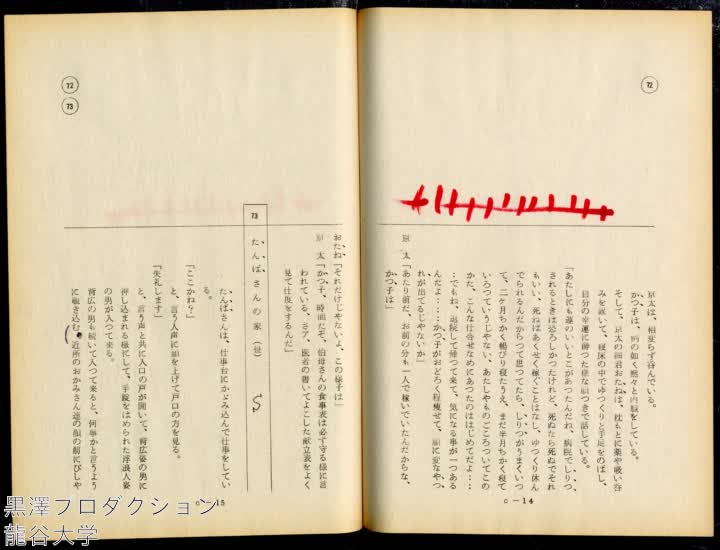 72
京太は、相変らず呑んでいる。
かつ子は、唖の如く黙々と内職をしている。
そして、京太の細君おたねは、枕もとに薬や吸い呑
みを置いて、寝床の中でゆつくりと手足をのばし、
自分の幸運に酔つた様な顔つきで話している。
「あたしにも運のいいとこがあつたんだね、病院でしりつ、
されるときは恐ろしかつたけれど、死ぬなら死ぬでそれ
もいい、死ねばあくせく稼ぐことはなし、ゆつくり休ん
でられるんだからつて思つてたら、しりつがうまくいつ
て、二ケ月ちかく横びり寝たうえ、まだ半月ちかく寝て
いろつていうじやない、あたしやものごころついてこの
かた、こんな仕合せなめにあつたのははじめてだよ…
…でもね、退院して帰つて来て、気になる事が一つある
んだよ……かつ子がおどろく程痩せて、顔に変なやつ
れが出てるじやないか」
京　太「あたり前だ、お前の分も一人で稼いでいたんだからな、
かつ子は」
c－14
72
73
おたね「それだけじやないよ、この様子は」
京　太「かつ子、時間だぞ、伯母さんの食事表は必ず守る様に言
われている、さア、医者の書いてよこした献立表をよく
見て仕度をするんだ」
73
たんばさんの家（昼）
たんばさんは、仕事台にかゞみ込んで仕事をしてい
る。
「ここかね？」
と、言う人声に顔を上げて戸口の方を見る。
「失礼します」
と、言う声と共に入口の戸が開いて、背広姿の男に
押し込まれる様にして、手錠をはめられた浮浪人姿
の男が入つて来る。
背広の男も続いて入つて来ると、何事かと言うよう
に覗き込む近所のおかみさん達の顔の前にぴしや
c－15
黒澤プロダクション
龍谷大学